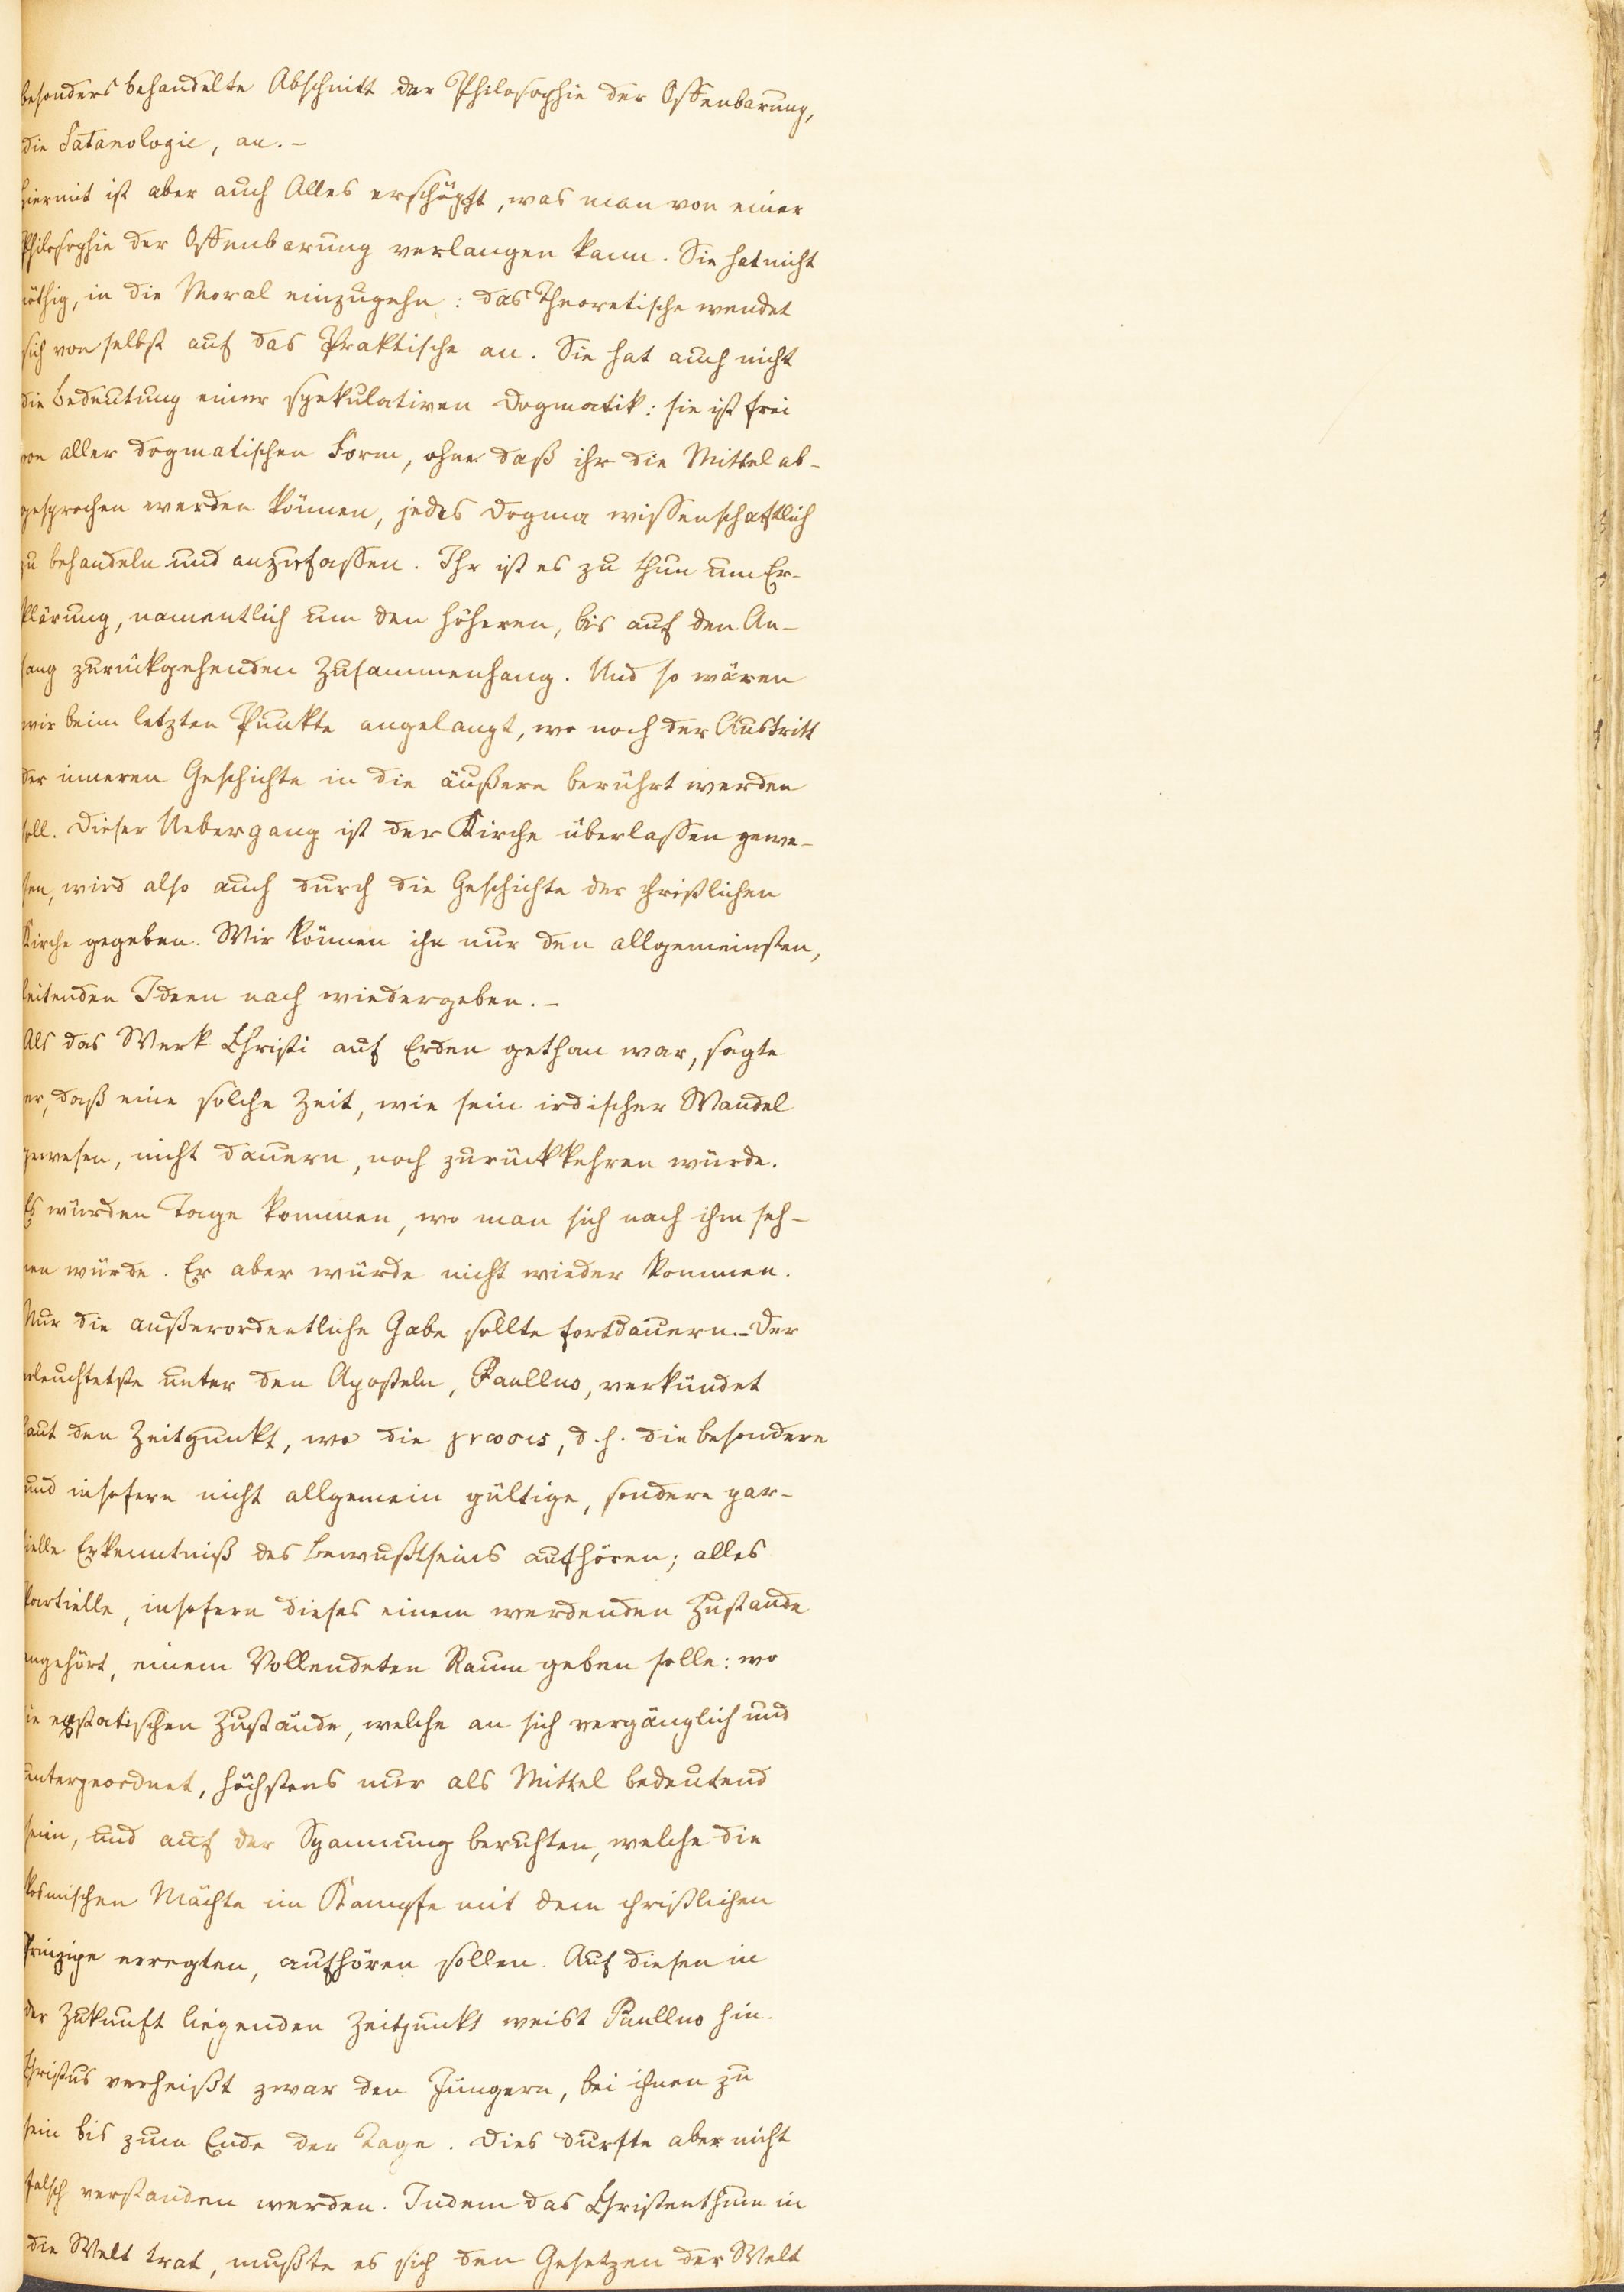 besonders behandelte Abschnitt der Philosophie der Offenbarung,
die Satanologie, an. –
hiermit ist aber auch Alles erschöpft, was man von einer
Philosophie der Offenbarung verlangen kann. Sie hat nicht
nöthig, in die Moral einzugehn: das Theoretische wendet
sich von selbst auf das Praktische an. Sie hat auch nicht
die Bedeutung einer spekulativen Dogmatik: sie ist frei
von aller dogmatischen Form, ohne daß ihr die Mittel ab-
gesprochen werden können, jedes Dogma wissenschaftlich
zu behandeln und anzufassen. Ihr ist es zu thun um Er-
klärung, namentlich um den höheren, bis auf den An-
fang zurückgehenden Zusammenhang. Und so wären
wir beim letzten Punkte angelangt, wo noch der Austritt
der inneren Geschichte in die äußere berührt werden
soll. Dieser Uebergang ist der Kirche überlassen gewe-
sen, wird also auch durch die Geschichte der christlichen
Kirche gegeben. Wir können ihn nur den allgemeinsten,
leitenden Ideen nach wiedergeben. –
Als das Werk Christi auf Erden gethan war, sagte
er, daß eine solche Zeit, wie sein irdischer Wandel
gewesen, nicht dauern, noch zurückkehren würde.
Es würden Tage kommen, wo man sich nach ihm seh-
nen würde. Er aber würde nicht wieder kommen.
Nur die außerordentliche Gabe sollte fortdauern. – Der
erleuchtetste unter den Aposteln, Paullus, verkündet
laut den Zeitpunkt, wo die γνωσις, d. h. die besondere
und insofern nicht allgemein gültige, sondern par-
tielle Erkenntniß des Bewußtseins aufhören; alles
Partielle, insofern dieses einem werdenden Zustande
angehört, einem Vollendeten Raum geben solle: wo
die exstatischen Zustände, welche an sich vergänglich und
untergeordnet, höchstens nur als Mittel bedeutend
seien, und auf der Spannung beruhten, welche die
kosmischen Mächte im Kampfe mit dem christlichen
Prinzipe erregten, aufhören sollen. Auf diesen in
der Zukunft liegenden Zeitpunkt weist Paullus hin.
Christus verheißt zwar den Jüngern, bei ihnen zu
sein bis zum Ende der Tage. Dies durfte aber nicht
falsch verstanden werden. Indem das Christenthum in
die Welt trat, mußte es sich den Gesetzen der Welt